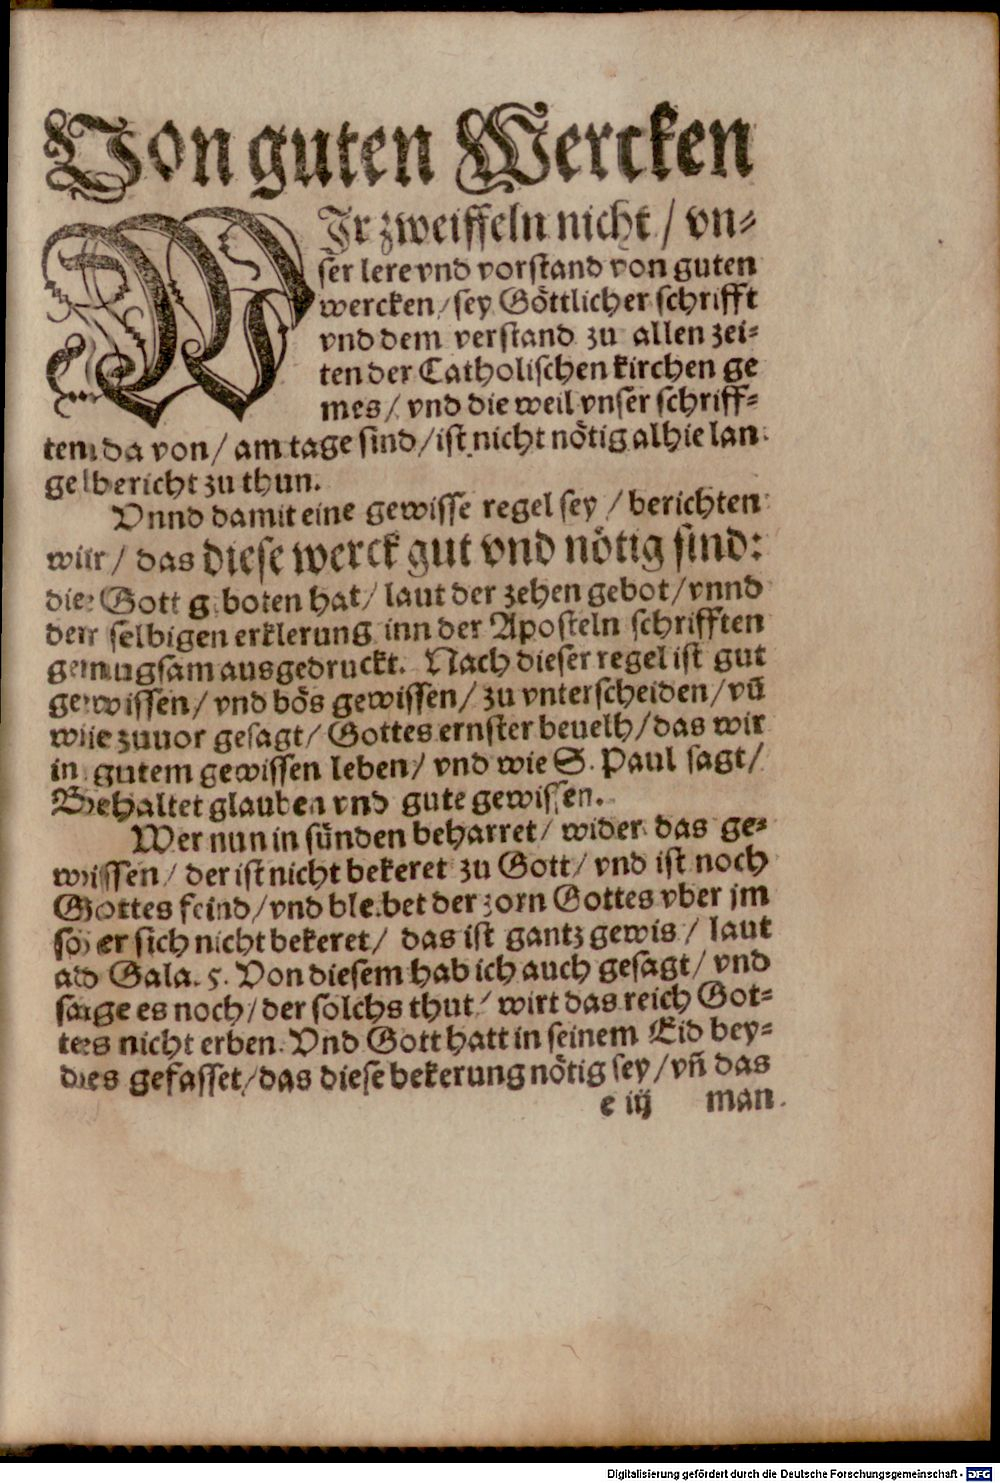 Von guten Wercken
WJr zweiffeln nicht / vn⸗
ser lere vnd vorstand von guten
wercken / sey Göttlicher schrifft
vnd dem verstand zu allen zei⸗
ten der Catholischen kirchen ge
mes / vnd die weil vnser schriff⸗
ten da von / am tage sind / ist nicht nötig alhie lan
ge bericht zu thun.
Vnnd damit eine gewisse regel sey / berichten
wiir / das diese werck gut vnd nötig sind:
die Gott geboten hat / laut der zehen gebot / vnnd
derr selbigen erklerung inn der Aposteln schrifften
genugsam ausgedruckt. Nach dieser regel ist gut
gewissen / vnd bös gewissen / zu vnterscheiden / vñ
wiie zuuor gesagt / Gottes ernster beuelh / das wir
in gutem gewissen leben / vnd wie S. Paul sagt /
Behaltet glauben vnd gute gewissen.
Wer nun in sünden beharret / wider das ge⸗
wissen / der ist nicht bekeret zu Gott / vnd ist noch
Gottes feind / vnd bleibet der zorn Gottes vber jm
so er sich nicht bekeret / das ist gantz gewis / laut
ad Gala. 5. Von diesem hab ich auch gesagt / vnd
sage es noch / der solchs thut / wirt das reich Got⸗
tes nicht erben. Vnd Gott hatt in seinem Eid bey⸗
des gefasset / das diese bekerung nötig sey / vñ das
e iij man
Digitalisierung gefördert durch die Deutsche Forschungsgemeinschaft - DFG